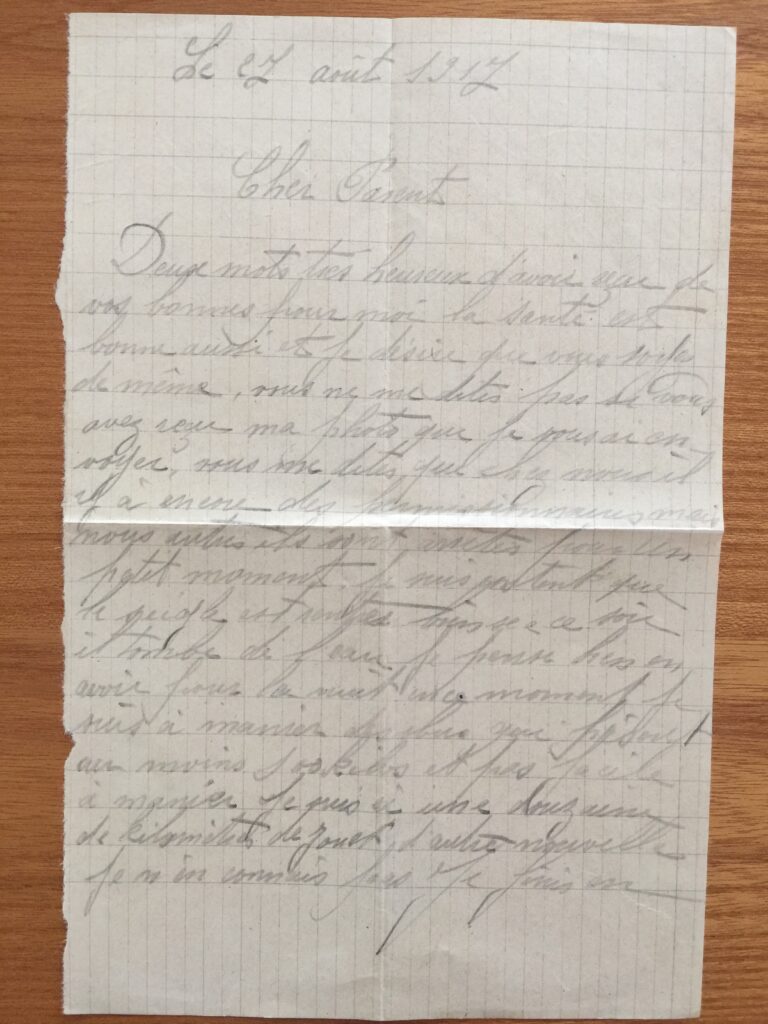 Le 27 août 1917
Cher Parent
Deux mots très heureux d'avoir reçu de
vos bonnes pour moi la santé est
bonne aussi et je désire que vous soyez
de même, vous ne me dites pas si vous
avez reçu ma photo que je vous ai en
voyer, vous me dites que chez nous il
y à encore des permissionnaires mais
nous autres ils sont arrêtés pour un
petit moment. Je suis content que
le seigle est rentrée ce soir
il tombe de l'eau je pense bien en
avoir pour la nuit en ce moment je
suis à manier des obus qui pèsent
au moins kilos et pas facile
à manier Je suis à une douzaine
de kilomètres de d'autre nouvelle
je n'en connais pas Je finis en